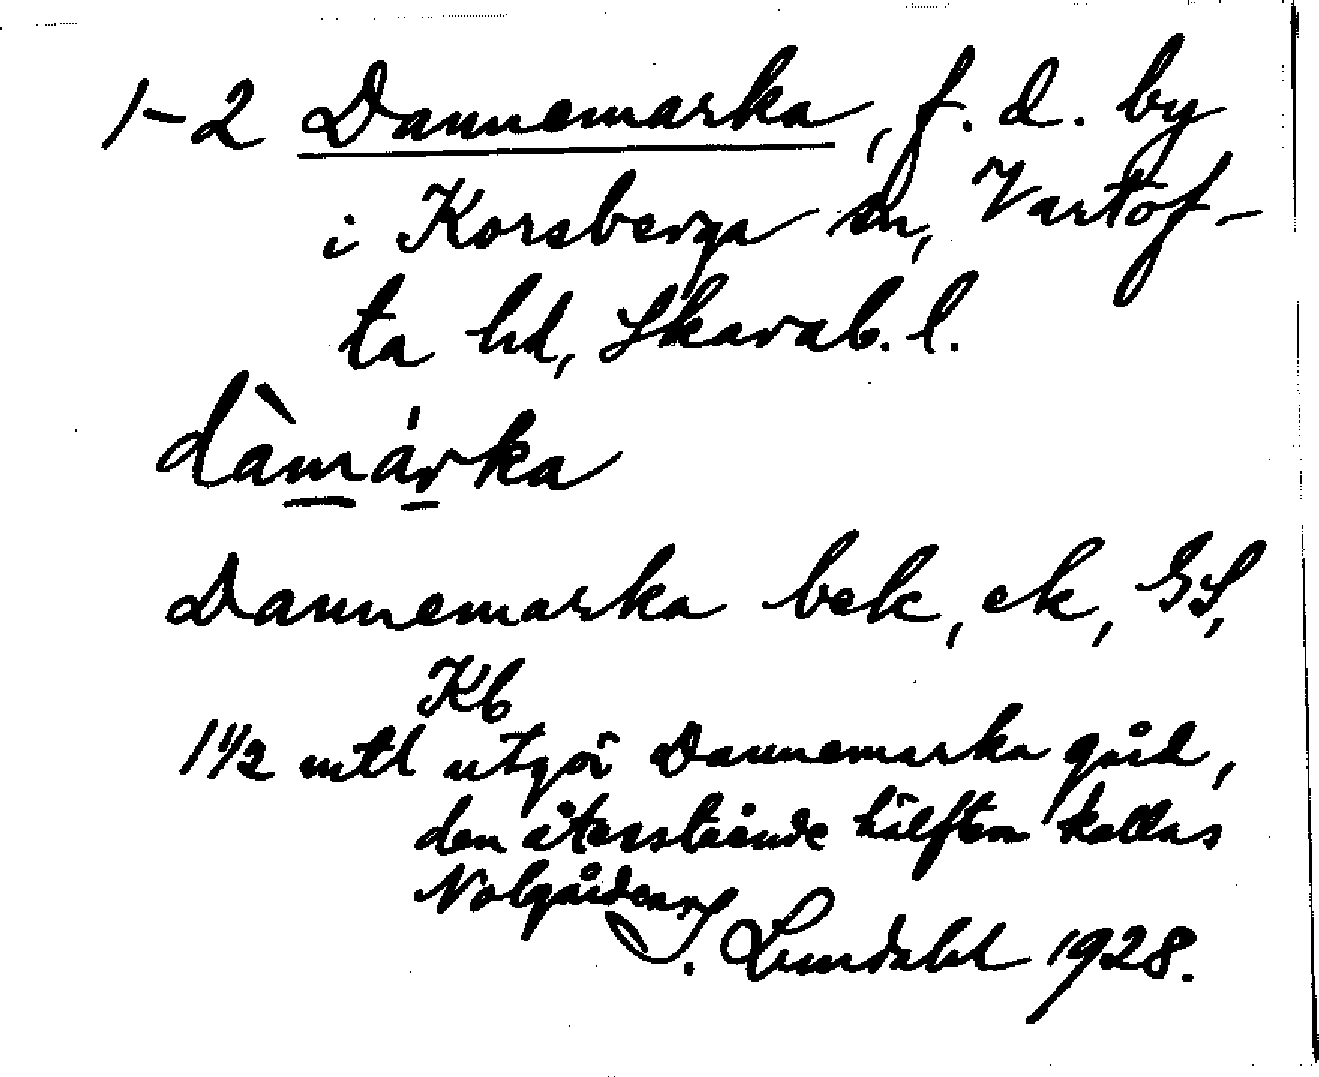 1-2 Dannemarka, f. d. by
i Korsberga sn, Vartof-
ta hd, Skarab. l.
dàmárka
Dannemarka bek, ek, GS,
Kb
1 1/2 mtl utgör Dannemarka gård,
den återstående hälften kallas
Nolgården
J. Lundahl 1928.